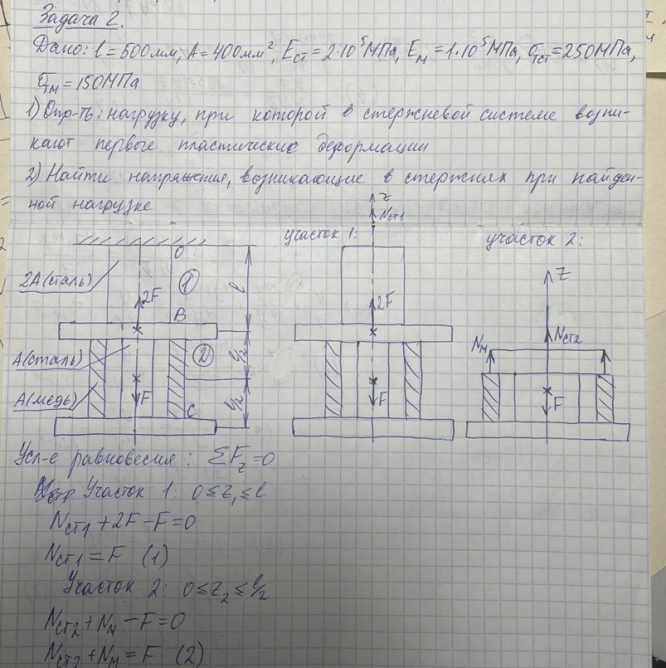 Задача 2.
Дано: l = 500мм, A = 400мм², Eст = 2·10⁵МПа, Eм = 1·10⁵МПа, σтст = 250МПа,
σтм = 150МПа
1) Опр-ть: нагрузку, при которой в стержневой системе возни-
кают первые пластические деформации
2) Найти напряжения, возникающие в стержнях при найден-
ной нагрузке
z
Nст1
участок 1:
участок 2:
O
2A(сталь)
1
l
2F
B
A(сталь)
2
l/2
A(медь)
F
l/2
C
2F
F
z
Nм
Nст2
F
Усл-е равновесия: ΣFz=0
Участок 1: 0≤z₁≤l
Nст1 + 2F − F = 0
Nст1 = F (1)
Участок 2: 0≤z₂≤l/2
Nст2 + Nм − F = 0
Nст2 + Nм = F (2)